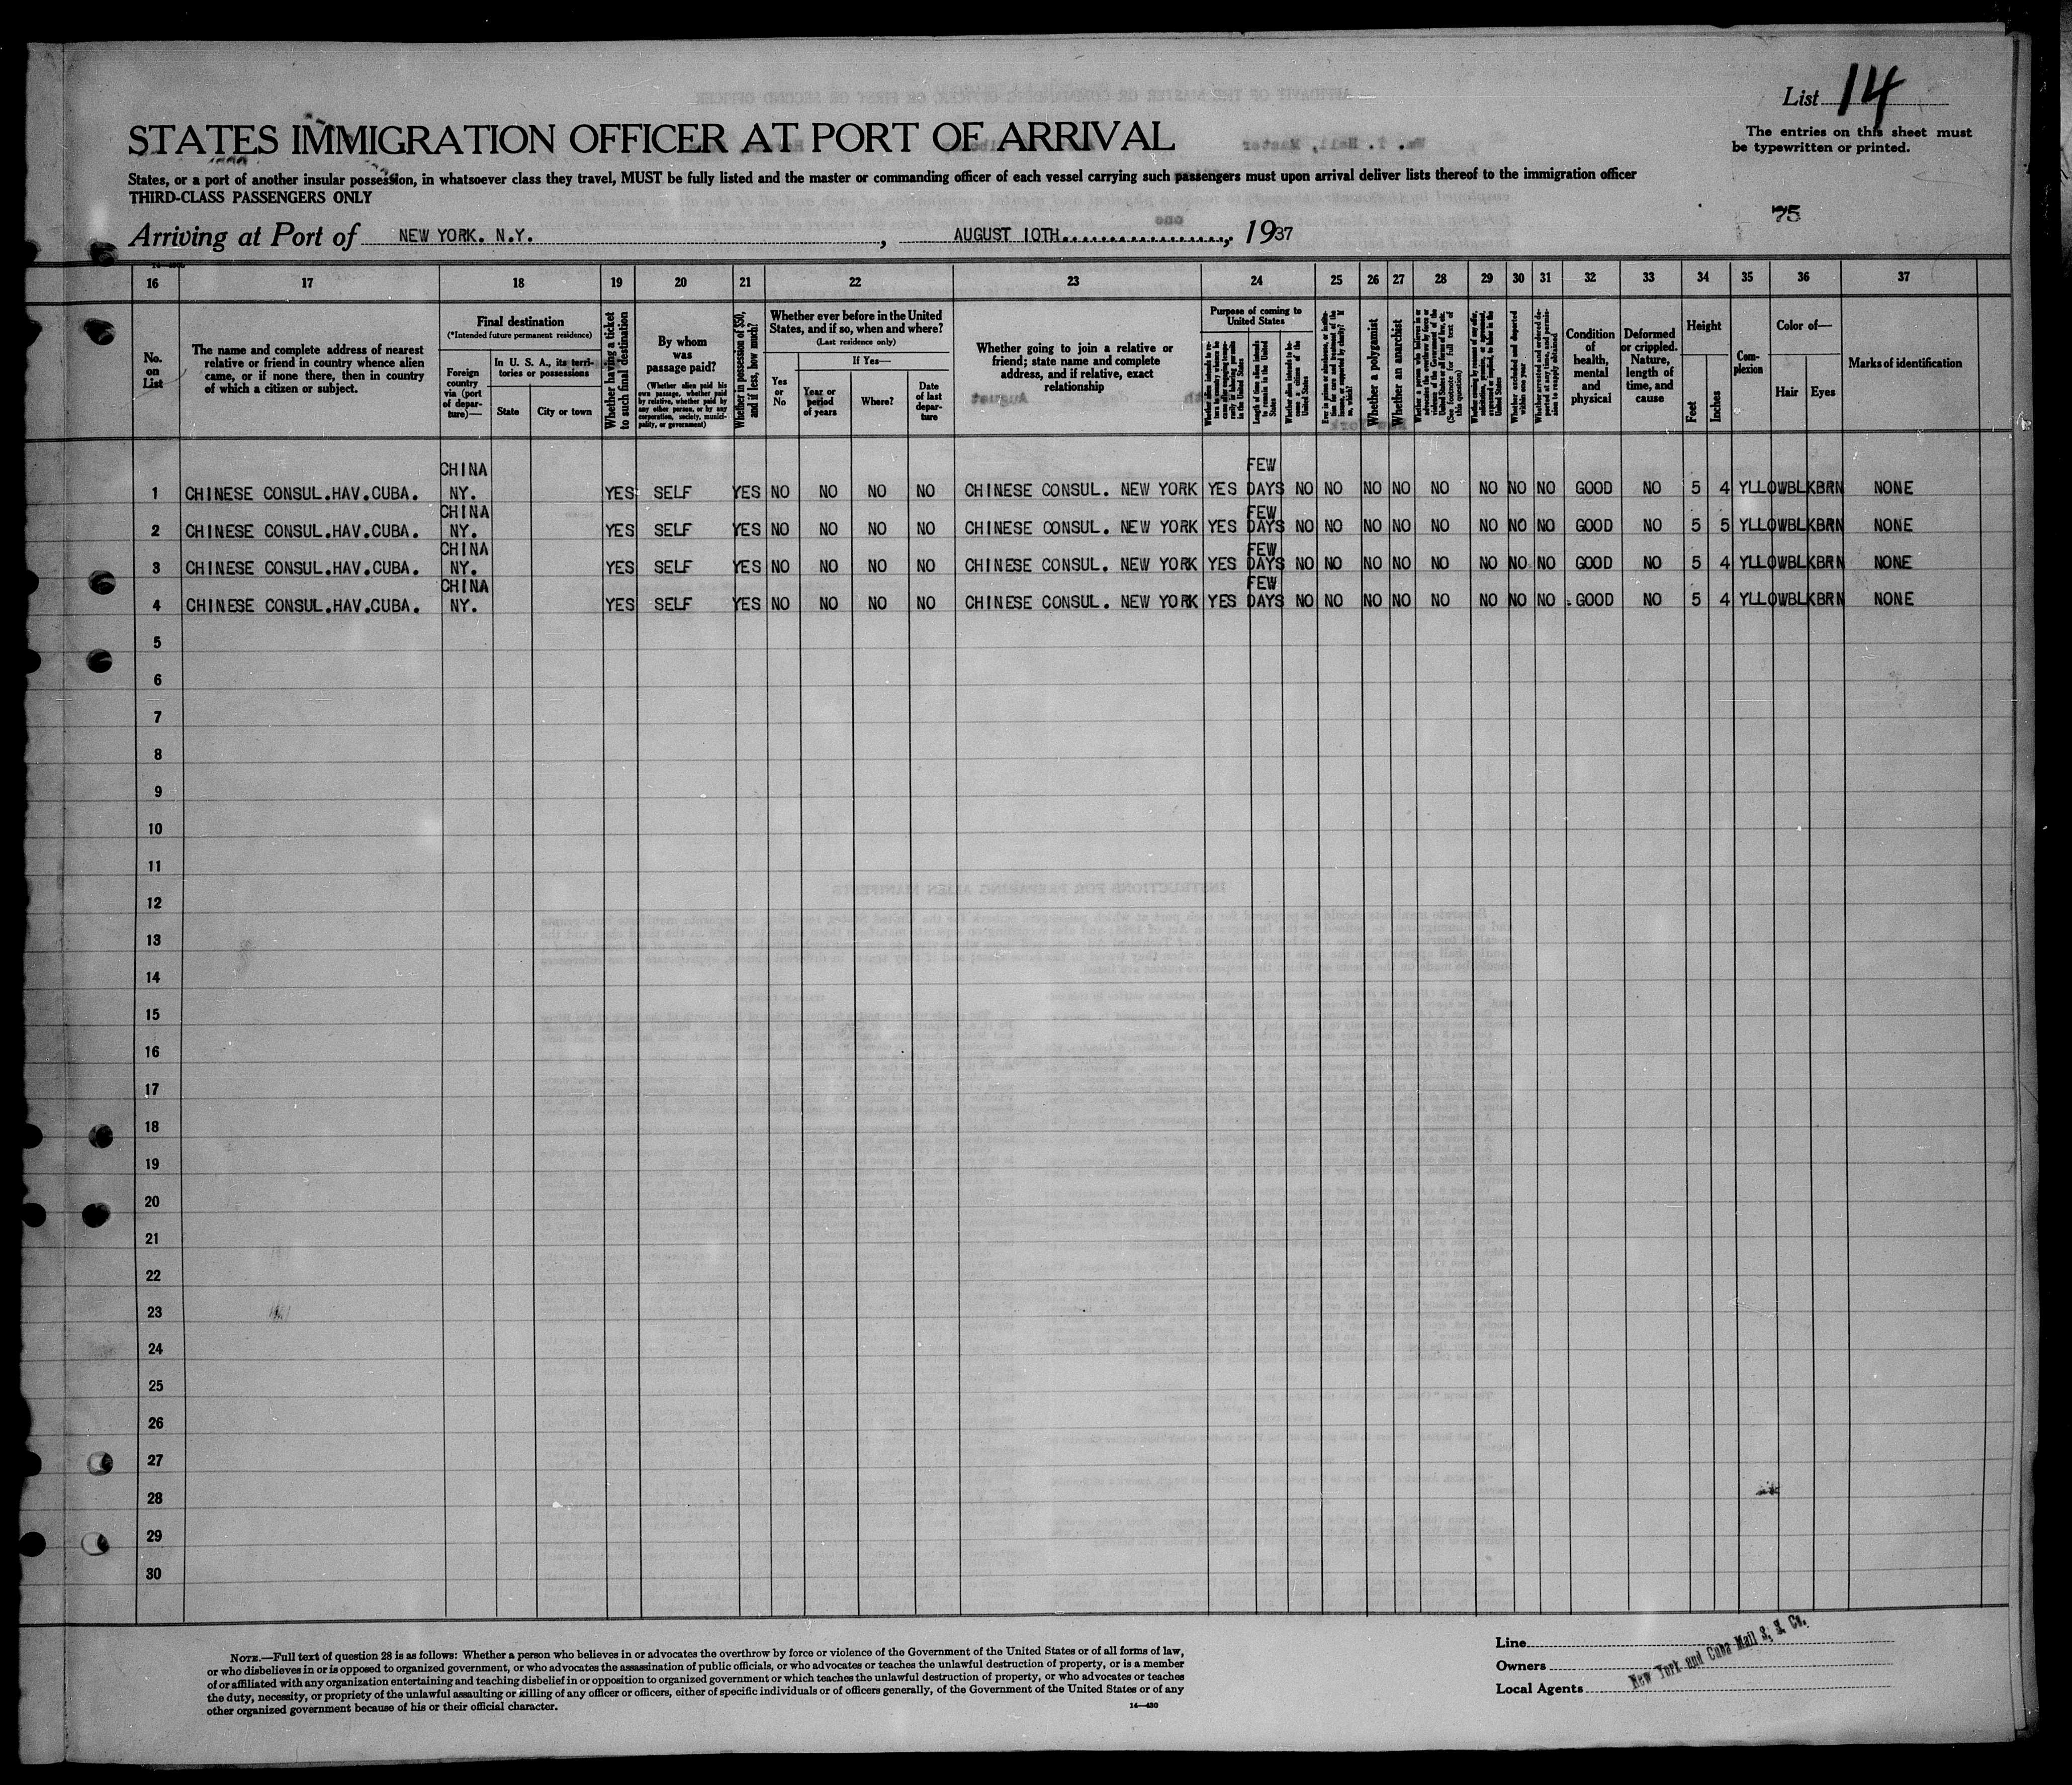 List 14
The entries on this sheet must
be typewritten or printed.
STATES IMMIGRATION OFFICER AT PORT OF ARRIVAL
States, or a port of another insular possession, in whatsoever class they travel, MUST be fully listed and the master or commanding officer of each vessel carrying such passengers must upon arrival deliver lists thereof to the immigration officer
THIRD-CLASS PASSENGERS ONLY
75
Arriving at Port of NEW YORK. N.Y., AUGUST 10TH, 1937
16 17 18 19 20 21 22 23 24 25 26 27 28 29 30 31 32 33 34 35 36 37
No. on List
The name and complete address of nearest
relative or friend in country whence alien
came, or if none there, then in country
of which a citizen or subject.
Final destination
(*Intended future permanent residence)
Foreign country via (port of departure)—
In U. S. A., its territories or possessions
State
City or town
Whether having a ticket to such final destination
By whom was passage paid?
(Whether alien paid his own passage, whether paid by relative, whether paid by any other person, or by any corporation, society, municipality, or government)
Whether in possession of $50, and if less, how much?
Whether ever before in the United States, and if so, when and where?
(Last residence only)
Yes or No
If Yes—
Year or period of years
Where?
Date of last departure
Whether going to join a relative or
friend; state name and complete
address, and if relative, exact
relationship
Purpose of coming to United States
Length of time alien intends to remain in the United States
Whether alien intends to become a citizen of the United States
Whether a polygamist
Whether an anarchist
Condition of health, mental and physical
Deformed or crippled. Nature, length of time, and cause
Height
Feet
Inches
Complexion
Color of—
Hair
Eyes
Marks of identification
1 CHINESE CONSUL.HAV.CUBA. CHINA NY. YES SELF YES NO NO NO NO CHINESE CONSUL. NEW YORK YES FEW DAYS NO NO NO NO NO NO NO NO GOOD NO 5 4 YLLOW BLK BRN NONE
2 CHINESE CONSUL.HAV.CUBA. CHINA NY. YES SELF YES NO NO NO NO CHINESE CONSUL. NEW YORK YES FEW DAYS NO NO NO NO NO NO NO NO GOOD NO 5 5 YLLOW BLK BRN NONE
3 CHINESE CONSUL.HAV.CUBA. CHINA NY. YES SELF YES NO NO NO NO CHINESE CONSUL. NEW YORK YES FEW DAYS NO NO NO NO NO NO NO NO GOOD NO 5 4 YLLOW BLK BRN NONE
4 CHINESE CONSUL.HAV.CUBA. CHINA NY. YES SELF YES NO NO NO NO CHINESE CONSUL. NEW YORK YES FEW DAYS NO NO NO NO NO NO NO NO GOOD NO 5 4 YLLOW BLK BRN NONE
5
6
7
8
9
10
11
12
13
14
15
16
17
18
19
20
21
22
23
24
25
26
27
28
29
30
NOTE.—Full text of question 28 is as follows: Whether a person who believes in or advocates the overthrow by force or violence of the Government of the United States or of all forms of law,
or who disbelieves in or is opposed to organized government, or who advocates the assassination of public officials, or who advocates or teaches the unlawful destruction of property, or is a member
of or affiliated with any organization entertaining and teaching disbelief in or opposition to organized government or which teaches the unlawful destruction of property, or who advocates or teaches
the duty, necessity, or propriety of the unlawful assaulting or killing of any officer or officers, either of specific individuals or of officers generally, of the Government of the United States or of any
other organized government because of his or their official character.
14—430
Line
Owners
Local Agents
New York and Cuba Mail S. S. Co.